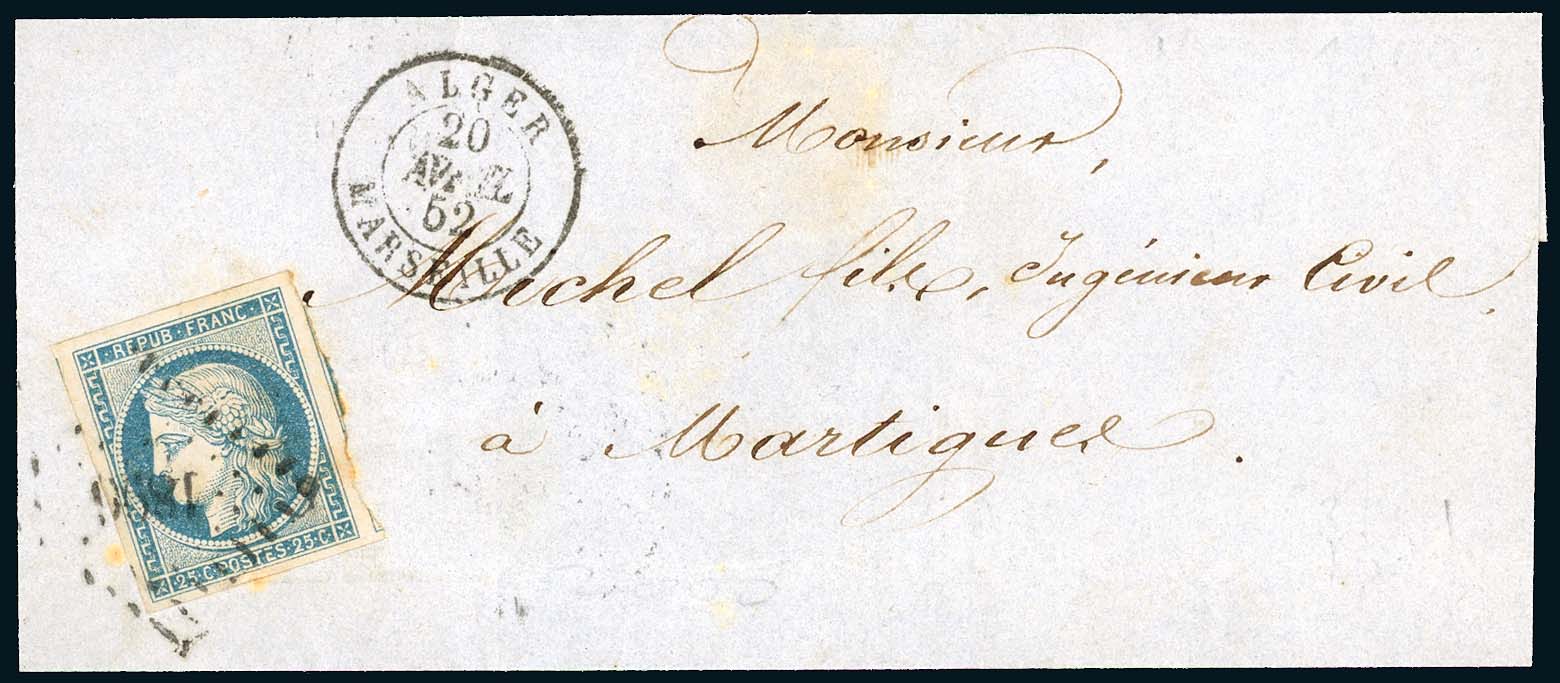 ALGER
20
AVRIL
52
MARSEILLE
Monsieur,
Michel fils, Ingénieur Civil,
à Martigues.
REPUB · FRANC ·
25 · C · POSTES · 25 · C